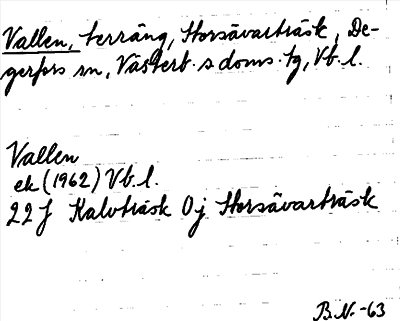 Vallen, terräng, Storsävarträsk, De-
gerfors sn, Västerb. s doms. tg, Vb. l.
Vallen
ek (1962) Vb. l.
22J Kalvträsk 0j Storsävarträsk
B.N.-63